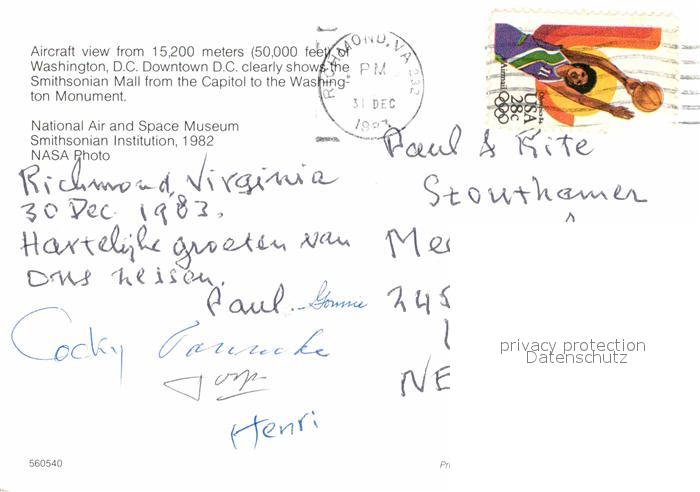 Aircraft view from 15,200 meters (50,000 feet) of
Washington, D.C. Downtown D.C. clearly shows the
Smithsonian Mall from the Capitol to the Washing-
ton Monument.
National Air and Space Museum
Smithsonian Institution, 1982
NASA Photo
RICHMOND, VA 232
PM
31 DEC
1983
Airmail
Olympics
USA
28c
Richmond, Virginia
30 Dec. 1983.
Hartelijke groeten van
ons
Paul
Cocky
Henri
Paul & Rite
Stouthamer
Me
245
NE
privacy protection
Datenschutz
560540
Pri